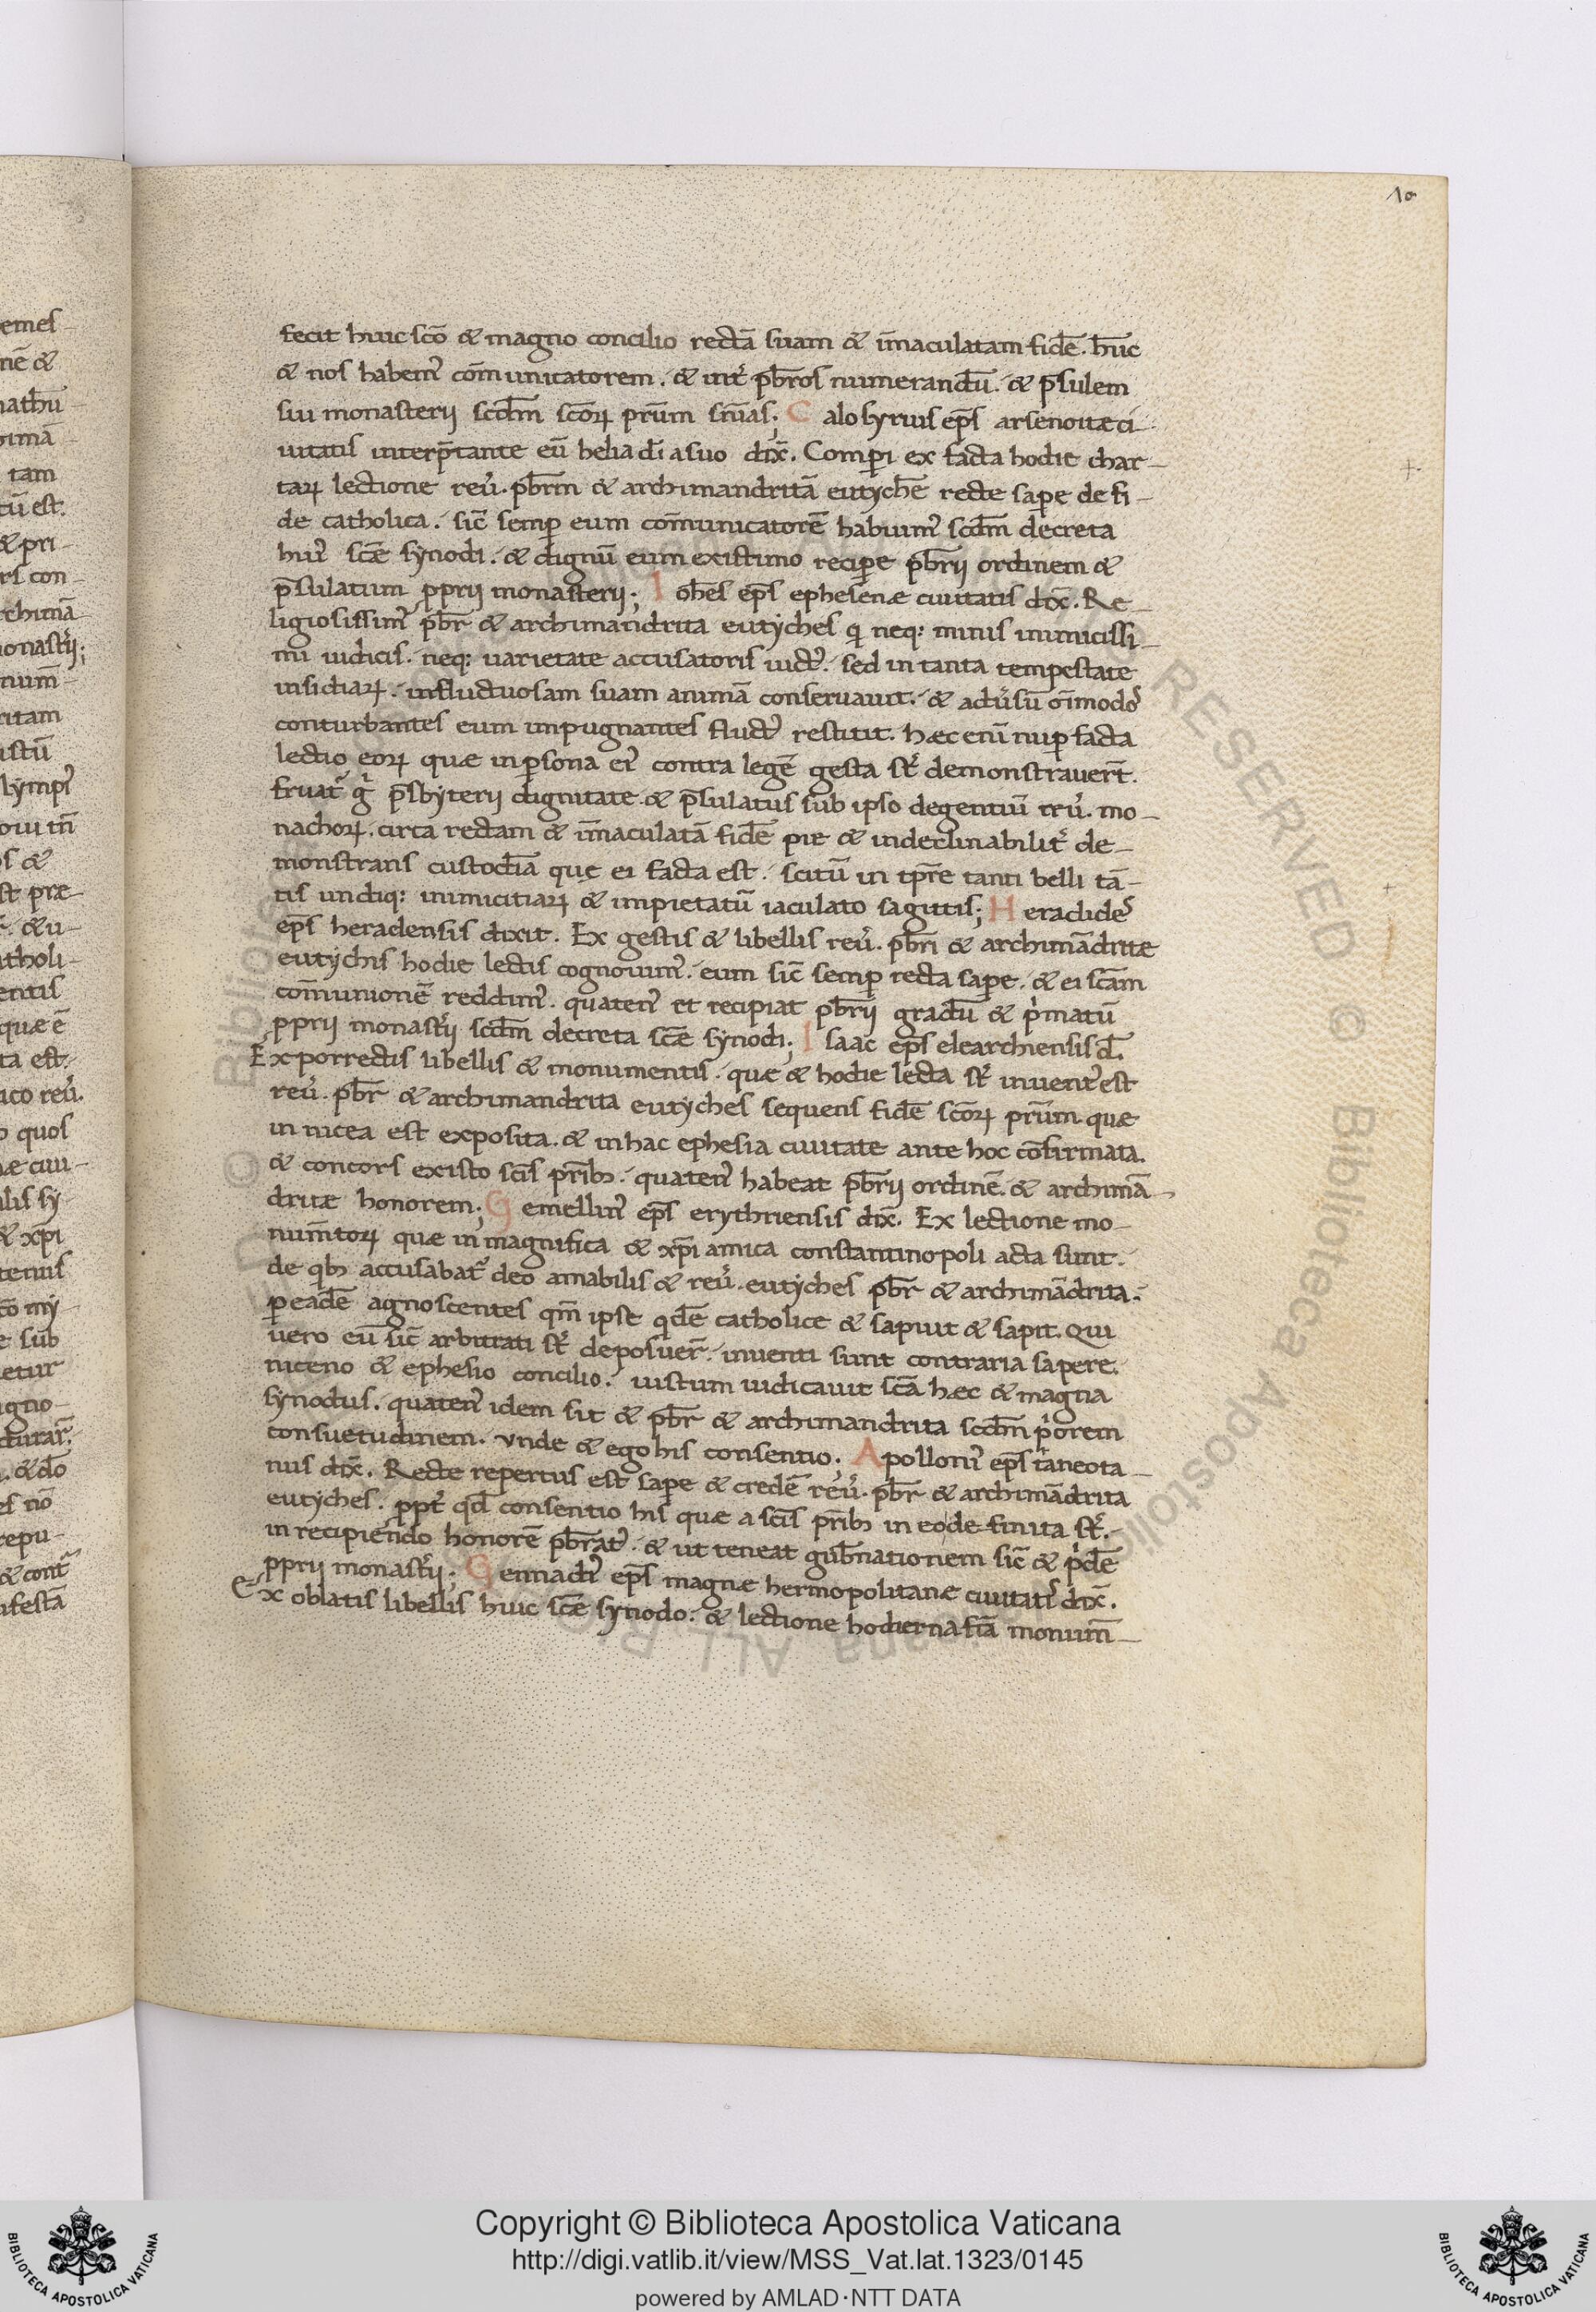 10
fecit huic sc̄o & magno concilio rectā suam & im̄aculatam fidē. hūc
& nos habem᾽ com̄unicatorem. & int᾽ pb̄ros numerandū. & p̄sulem
sui monasterij scd̄m sc̄oꝝ pr̄um sn̄ias; Calosyrius ep̄s arsenoitæ ci-
uitatis interp̄tante eū helia di asuo dix̄. Comꝑi ex facta hodie char-
taꝝ lectione reu᾽. pb̄rm & archimandritā eutychē recte saꝑe de fi-
de catholica. sic̄ semꝑ eum com̄unicatorē habuim᾽ scd̄m decreta
hui᾽ sc̄æ synodi. & dignū eum existimo reciꝑe pb̄rij ordinem &
p̄sulatum ꝓprij monasterij; Ioh̄es ep̄s ephesenæ ciuitatis dix̄. Re-
ligiosissim᾽ pb̄r & archimandrita eutyches qi neq: minis inimicissi-
mi iudicis. neq: uarietate accusatoris uict᾽. sed in tanta tempestate
insidiaꝝ. influctuosam suam animā conseruauit. & adu᾽sū om̄imodo᾽
conturbantes eum impugnantes fluct᾽ restitit. hæc enī nuꝑ facta
lectio eoꝝ quæ in ꝑsona ei᾽ contra legē gesta st᾽ demonstrauer̄t.
fruat᾽ gi p̄sbyterij dignitate. & p̄sulatus sub ipso degentiū reu᾽. mo-
nachoꝝ. circa rectam & im̄aculatā fidē pie & indeclinabilit᾽ de-
monstrans custodiā quę ei facta est. scitū in tp̄re tanti belli tā-
tis undiq: inimicitiaꝝ & impietatū iaculato sagittis; Heraclide᾽
ep̄s heraclensis dixit. Ex gestis & libellis reu᾽. pb̄ri & archimādritæ
eutychis hodie lectis cognouim᾽. eum sic̄ semꝑ recta saꝑe. & ei sc̄am
com̄unionē reddim᾽. quaten᾽ et recipiat pb̄rij gradū & pimatū
ꝓprij monast᾽ij scd̄m decreta sc̄æ synodi; Isaac ep̄s elearchiensis d̄.
Ex porrectis libellis & monumentis. quæ & hodie lecta st᾽ inuent᾽ est
reu᾽. pb̄r & archimandrita eutyches sequens fidē sc̄oꝝ pr̄um quæ
in nicea est exposita. & in hac ephesia ciuitate ante hoc cōfirmata.
& concors existo sc̄is pr̄ib; quaten᾽ habeat pb̄rij ordinē. & archimā-
dritæ honorem; Gemellin᾽ ep̄s erythriensis dix̄. Ex lectione mo-
num̄toꝝ quæ in magnifica & xp̄i amica constantinopoli acta sunt.
de qib; accusabat᾽ deo amabilis & reu᾽. eutyches pb̄r & archimādrita.
ꝑ eādē agnoscentes qm̄ ipse qidē catholice & sapuit & sapit. Qui
uero eū sic̄ arbitrati st᾽ deposuer̄. inuenti sunt contraria sapere.
niceno & ephesio concilio. iustum iudicauit sc̄a hæc & magna
synodus. quaten᾽ idem sit & pb̄r & archimandrita scd̄m piorem
consuetudinem. Vnde & ego his consentio. Apolloni᾽ ep̄s taneota-
nus dix̄. Recte repertus est saꝑe & credē reu᾽. pb̄r & archimādrita
eutyches. ꝓpt᾽ qd̄ consentio his quæ a sc̄is pr̄ib; in eode-finita st᾽.
in recipiendo honorē pb̄rat᾽. & ut teneat gub̄nationem sic̄ & pidē
ꝓprij monast᾽ij. Gennadi᾽ ep̄s magnæ hermopolitanæ ciuitati᾽ dix̄.
Ex oblatis libellis huic sc̄æ synodo. & lectione hodierna fīa monum̄-
Copyright © Biblioteca Apostolica Vaticana
http://digi.vatlib.it/view/MSS_Vat.lat.1323/0145
powered by AMLAD·NTT DATA
BIBLIOTECA APOSTOLICA VATICANA
BIBLIOTECA APOSTOLICA VATICANA